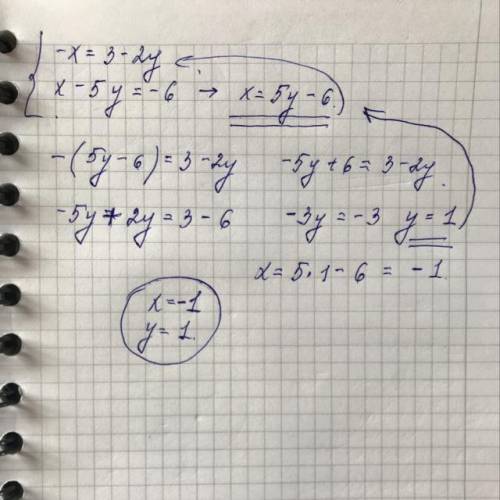 -x = 3 - 2y
x - 5y = -6 → x = 5y - 6.
-(5y - 6) = 3 - 2y   -5y + 6 = 3 - 2y.
-5y + 2y = 3 - 6   -3y = -3   y = 1
x = 5 · 1 - 6 = -1.
x = -1
y = 1.